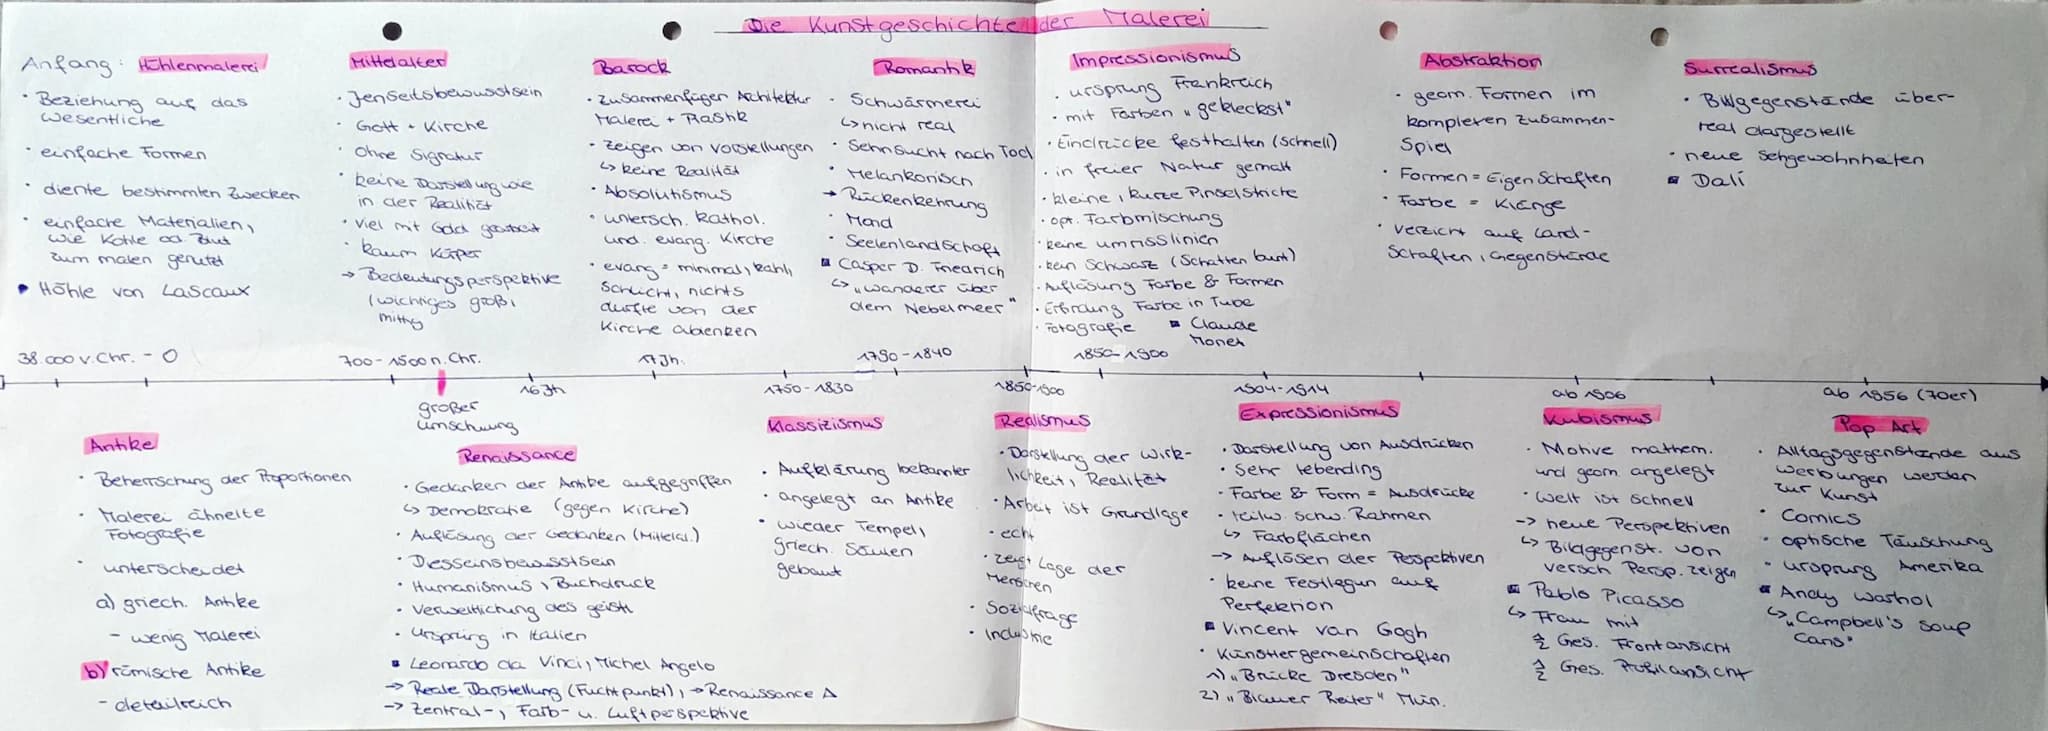 Die Kunstgeschichte der Malerei
Anfang: Höhlenmalerei
· Beziehung auf das
wesentliche
· einfache Formen
· diente bestimmten Zwecken
· einfache Materialien,
wie Kohle od. Blut
zum malen genutzt
• Höhle von Lascaux
38.000 v. Chr. - 0
Mittelalter
· Jenseitsbewusstsein
· Gott + Kirche
· Ohne Signatur
· keine Darstellung wie
in der Realität
· viel mit Gold gearbeit
· kaum Körper
→ Bedeutungsperspektive
(wichtiges groß,
mittig
700-1500 n. Chr.
Barock
· zusammenfüger Architektur
Malerei + Plastik
· zeigen von Vorstellungen
↳ keine Realität
· Absolutismus
· untersch. kathol.
und. evang. Kirche
· evang = minimal, kahl,
schlicht, nichts
durfte von der
Kirche ablenken
17 Jh.
Romantik
· Schwärmerei
↳ nicht real
· Sehnsucht nach Tod
· Melankorisch
→ Rückenkehrung
· Mond
· Seelenlandschaft
▪ Casper D. Friedrich
↳ „Wanderer über
dem Nebelmeer"
1790-1840
Impressionismus
· ursprung Frankreich
· mit Farben „gekleckst"
· Eindrücke festhalten (schnell)
· in freier Natur gemalt
· kleine, kurze Pinselstriche
· opt. Farbmischung
· keine umrisslinien
· kein Schwarz (Schatten bunt)
· Auflösung Farbe & Formen
· Erfindung Farbe in Tube
· Fotografie ▪ Claude
Monet
1850-1900
Abstraktion
· geom. Formen im
komplexen Zusammen-
Spiel
· Formen = Eigenschaften
· Farbe = Klänge
· Verzicht auf Land-
schaften, Gegenstände
Surrealismus
· Bildgegenstände über-
real dargestellt
· neue Sehgewohnheiten
▪ Dalí
Antike
· Beherrschung der Proportionen
· Malerei ähnelte
Fotografie
· unterscheidet
a) griech. Antike
- wenig Malerei
b) römische Antike
- detailreich
großer
umschwung
16 Jh
Renaissance
· Gedanken der Antike aufgegriffen
↳ Demokratie (gegen Kirche)
· Auflösung der Gedanken (Mittelal.)
· Diesseinsbewusstsein
· Humanismus, Buchdruck
· Verweltlichung des geistl
· Ursprung in Italien
▪ Leonardo da Vinci, Michel Angelo
→ Reale Darstellung (Fluchtpunkt), → Renaissance Δ
→ Zentral-, Farb- u. Luftperspektive
1750-1830
Klassizismus
· Aufklärung bekannter
· angelegt an Antike
· wieder Tempel,
griech. Säulen
gebaut
1850-1900
Realismus
· Darstellung der Wirk-
lichkeit, Realität
· Arbeit ist Grundlage
· echt
· zeigt Lage der
Menschen
· Sozialfrage
· Industrie
1904-1914
Expressionismus
· Darstellung von Ausdrücken
· sehr lebending
· Farbe & Form = Ausdrücke
· teilw. schw. Rahmen
↳ Farbflächen
→ Auflösen der Perspektiven
· keine Festlegun auf
Perfektion
▪ Vincent van Gogh
· Künstlergemeinschaften
1) „Brücke Dresden"
2) „Blauer Reiter" Mün.
ab 1906
Kubismus
· Motive mathem.
und geom angelegt
· Welt ist schnell
→ neue Perspektiven
↳ Bildgegenst. von
versch Persp. zeigen
▪ Pablo Picasso
↳ Frau mit
½ Ges. Frontansicht
½ Ges. Profilansicht
ab 1956 (70er)
Pop Art
· Alltagsgegenstände aus
Werbungen werden
zur Kunst
· Comics
· optische Täuschung
· ursprung Amerika
▪ Andy Warhol
↳ „Campbell's Soup
Cans"